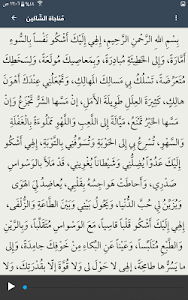 مناجاة الشاكين
بِسْمِ اللهِ الرَّحْمنِ الرَّحِيمِ، إِلهِي إِلَيْكَ أَشْكُو نَفْساً بِالسُّوءِ
أَمَّارَةً، وَإِلَى الْخَطِيئَةِ مُبادِرَةً، وَبِمَعاصِيكَ مُولَعَةً، وَلِسَخَطِكَ
مُتَعَرِّضَةً، تَسْلُكُ بِي مَسالِكَ الْمَهالِكِ، وَتَجْعَلُنِي عِنْدَكَ أَهْوَنَ
هالِكٍ، كَثِيرَةَ الْعِلَلِ، طَوِيلَةَ الأَمَلِ، إِنْ مَسَّهَا الشَّرُّ تَجْزَعُ، وَإِنْ
مَسَّهَا الْخَيْرُ تَمْنَعُ، مَيَّالَةً إِلَى اللَّعِبِ وَاللَّهْوِ مَمْلُوَّةً بِالْغَفْلَةِ
وَالسَّهْوِ، تُسْرِعُ بِي إِلَى الْحَوْبَةِ وَتُسَوِّفُنِي بِالتَّوْبَةِ، إِلهِي
أَشْكُو إِلَيْكَ عَدُوّاً يُضِلُّنِي، وَشَيْطاناً يُغْوِينِي، قَدْ مَلأَ
بِالْوَسْواسِ صَدْرِي، وَأَحاطَتْ هَواجِسُهُ بِقَلْبِي، يُعاضِدُ لِيَ الْهَوَى
وَيُزَيِّنُ لِي حُبَّ الدُّنْيا، وَيَحُولُ بَيْنِي وَبَيْنَ الطَّاعَةِ وَالزُّلْفَى،
إِلهِي إِلَيْكَ أَشْكُو قَلْباً قاسِياً، مَعَ الْوَسْواسِ مُتَقَلِّباً، وَبِالرَّيْنِ
وَالطَّبْعِ مُتَلَبِّساً، وَعَيْناً عَنِ الْبُكاءِ مِنْ خَوْفِكَ جامِدَةً، وَإِلَى
ما يَسُرُّها طامِحَةً، إِلهِي لا حَوْلَ لِي وَلا قُوَّةَ إِلَّا بِقُدْرَتِكَ، وَلا